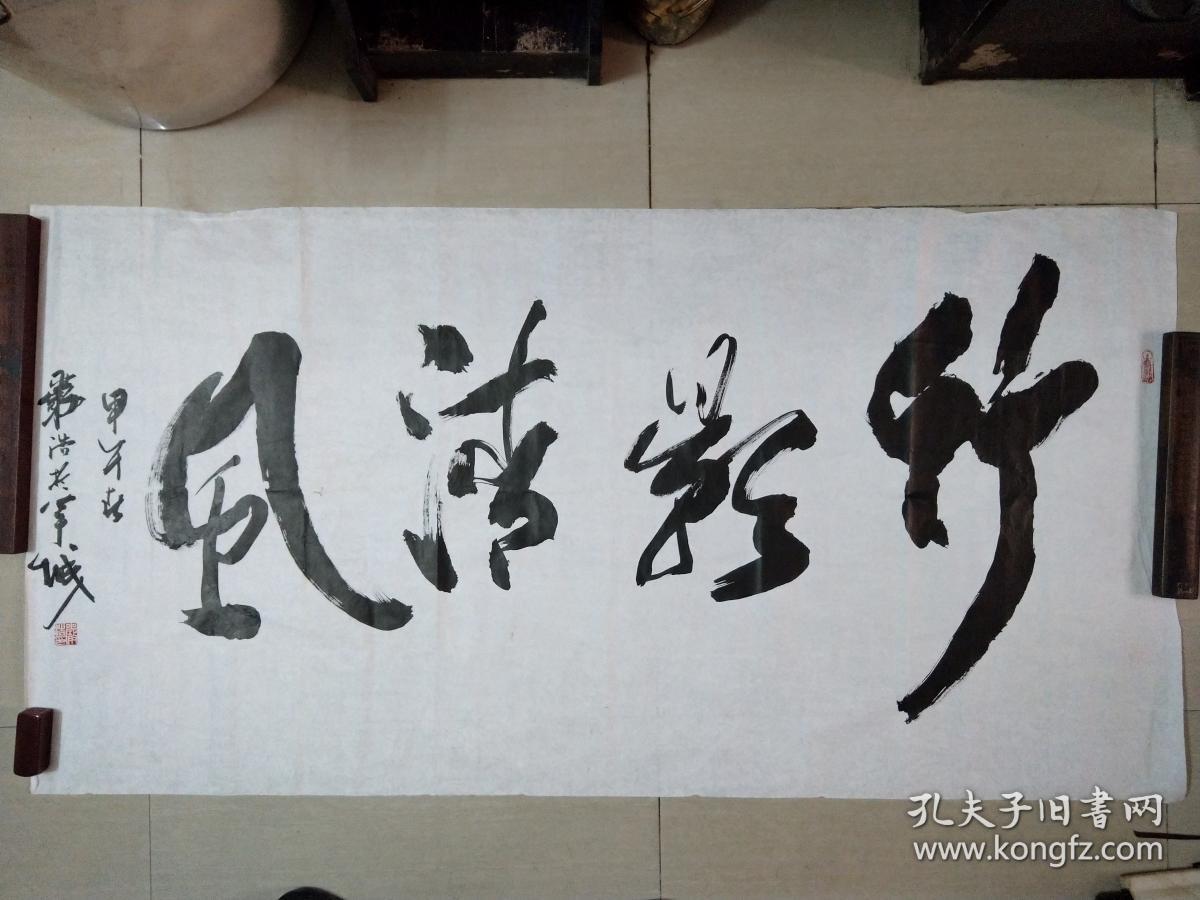 竹影清風
甲午春
浩於羊城
孔夫子旧書网
www.kongfz.com